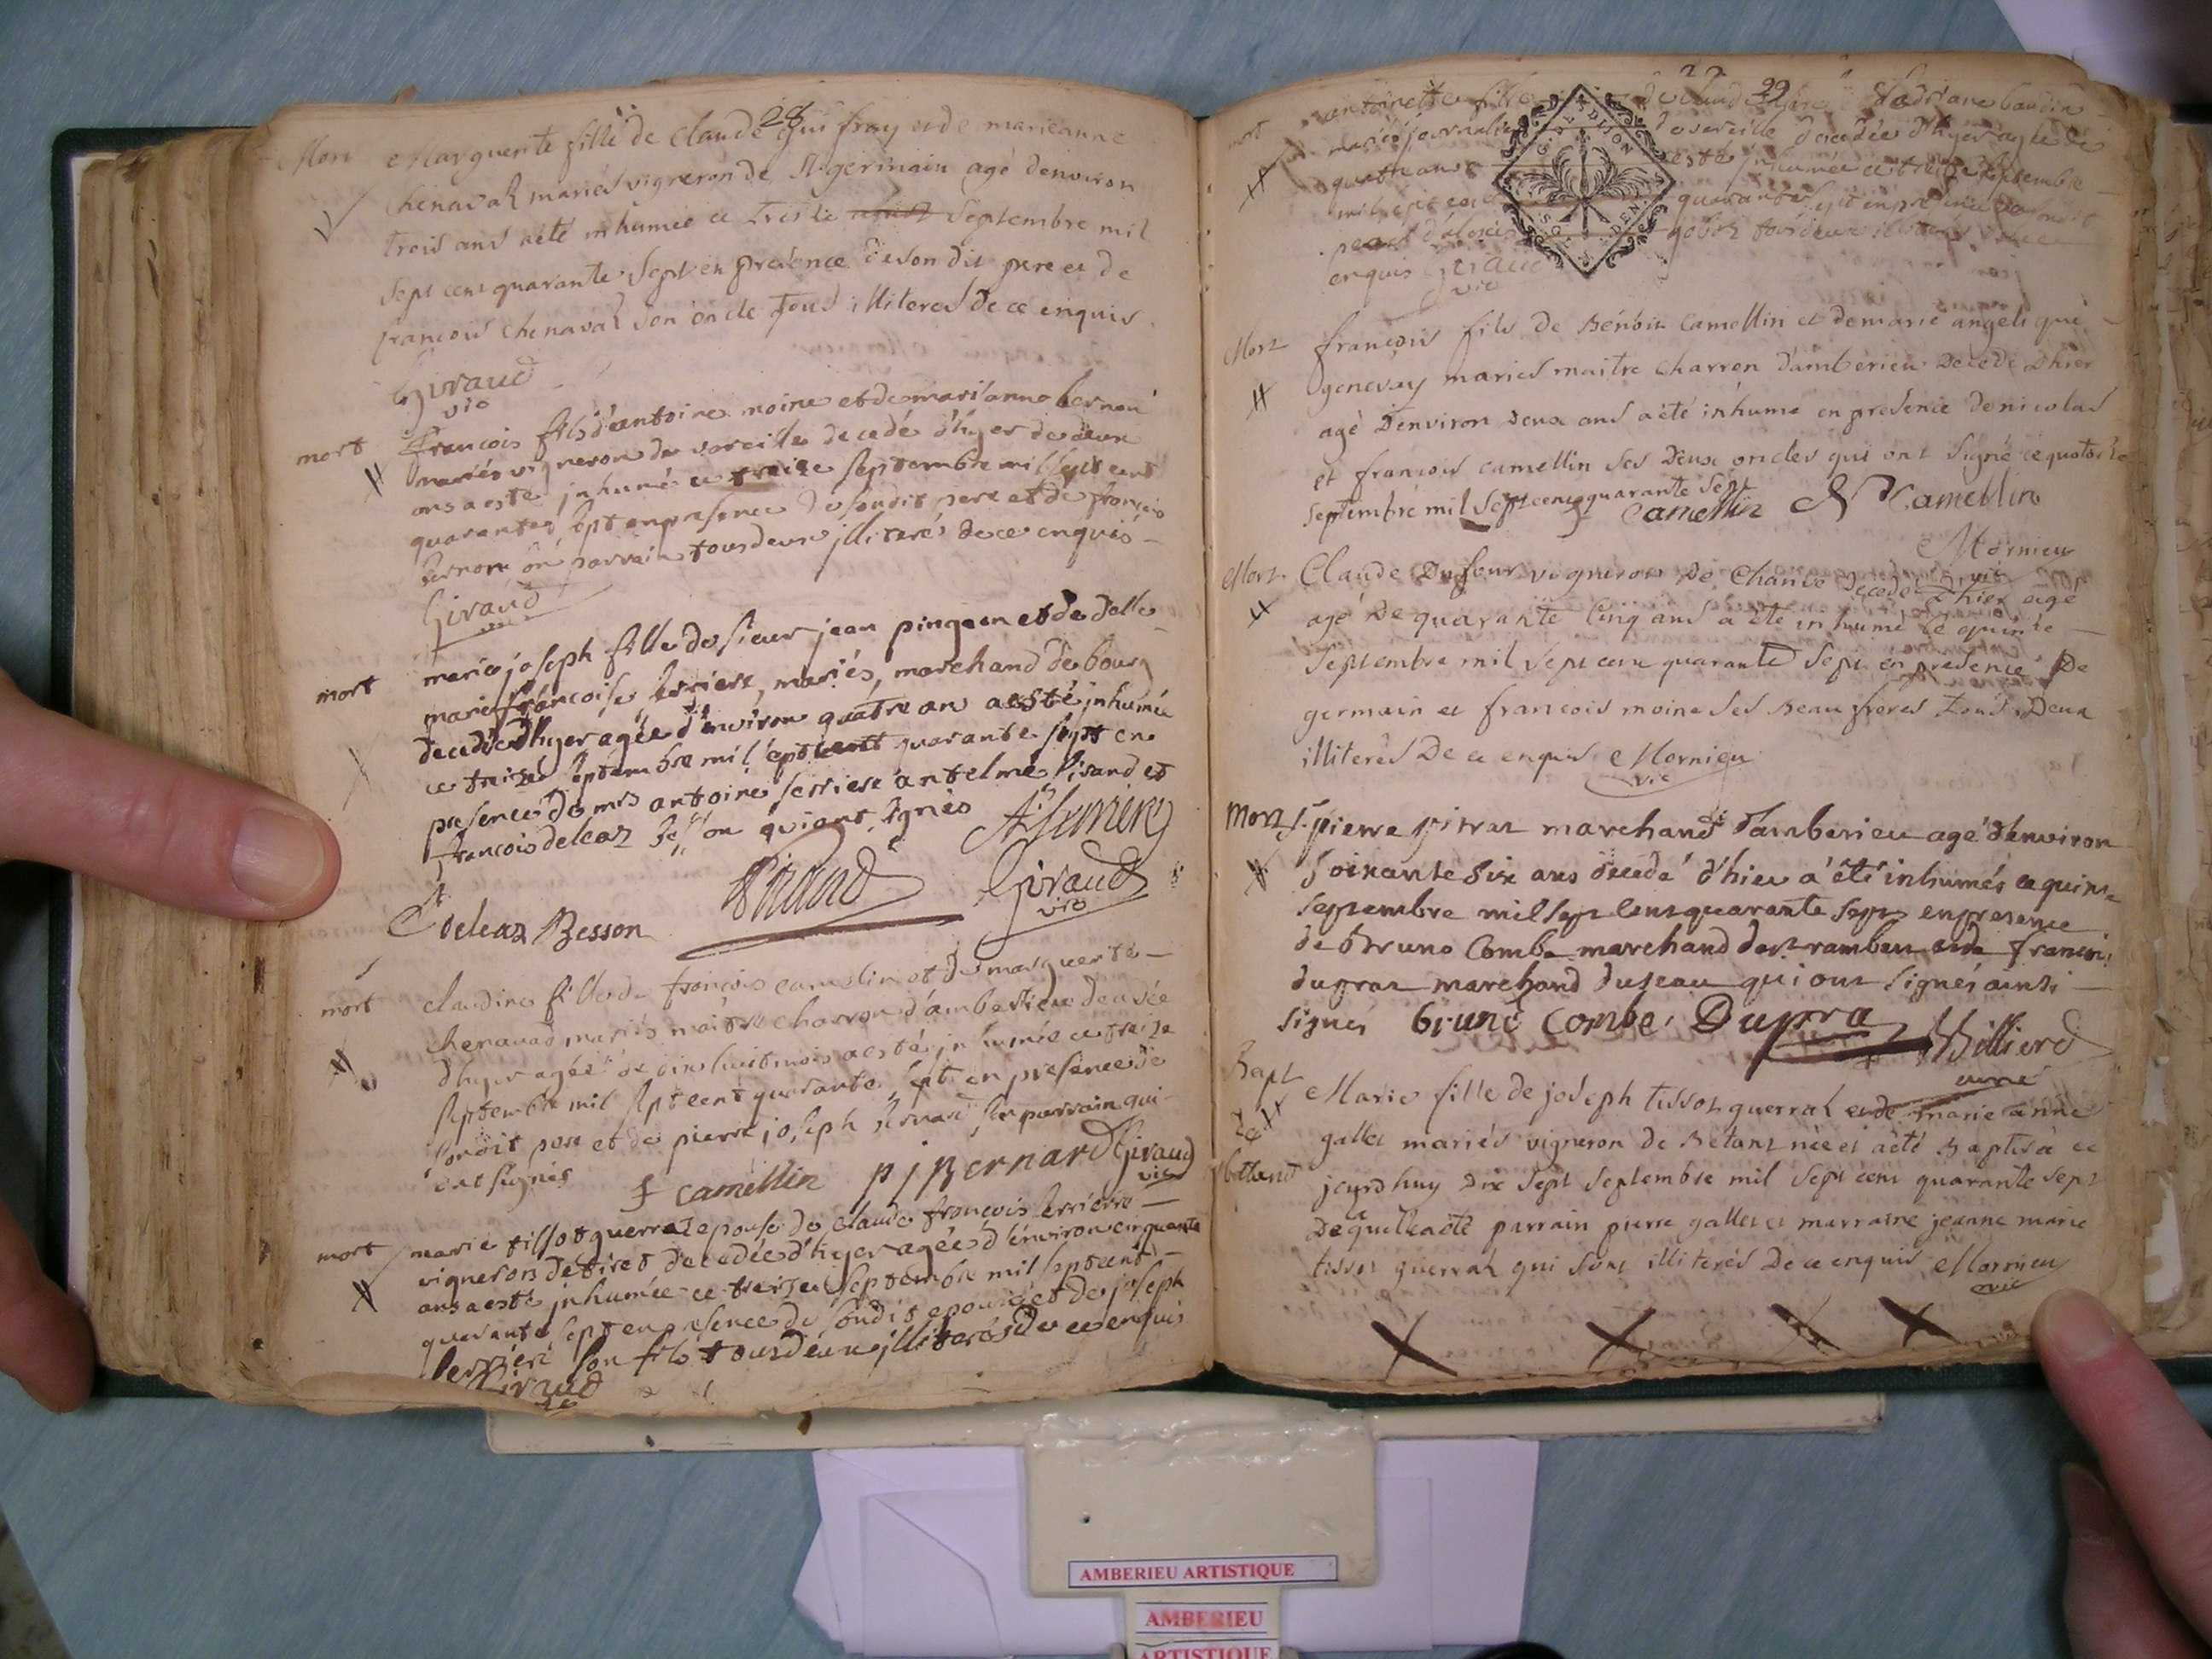 28
Mort Marguerite fille de Claude fray et de marieanne
chenaval mariés vigneron de St germain agé denviron
trois ans a été inhumée ce treize Septembre mil
Sept cent quarante Sept en presence de son dit pere et de
francois chenaval son oncle tous illiteres de ce enquis
Giraud
vic
mort francois fils d'antoine moine et de marianne bernon
mariés vigneron de vareille decedé d'hyer de deux
ans a esté inhumé ce treize septembre mil sept cent
quarante sept en presence de sondit pere et de francois
bernon son parrain tous deux illiterés de ce enquis
Giraud
vic
mort marie joseph fille de sieur jean pingeon et de delle
marie francoise serriere, mariés, marchand de bourg
decedée d'hyer agée d'environ quatre an a esté inhumée
ce treize septembre mil sept cent quarante sept en
presence de mrs antoine serriere antelme Vivand et
francois deleaz besson qui ont signés
A. Serriere
deleaz Besson
Giraud
vic
mort claudine fille de francois camelin et de marguerite
chenaval mariés maitre charron d'amberieu decedée
d'hyer agée de dix huit mois a esté inhumée ce treize
septembre mil sept cent quarante sept en presence de
sondit pere et de pierre joseph bernard son parrain qui
ont signés
f camellin P J BERNARD Giraud
vic
mort marie tissot guerraz epouse de claude francois serriere
vigneron de tiret decedée d'hyer agée d'environ cinquante
ans a esté inhumée ce treize septembre mil sept cent
quarante sept en presence de sondit epoux et de joseph
serriere son fils tous deux illiterés de ce enquis
Giraud
29
mort antoinette fille de claude et d'adriane baudin
mariés journalier de vareille decedée d'hyer agée de
quatre ans a esté inhumée ce treize septembre
mil sept cent quarante sept en presence
tous deux illiterés de ce
enquis Giraud
vic
Mort francois fils de Benoit Camellin et de marie angelique
genevay mariés maitre charron d'amberieu Decedé D'hier
agé D'environ Deux ans a été inhumé en presence de nicolas
et francois camellin ses Deux oncles qui ont signé ce quatorze
septembre mil Sept cent quarante Sept Camellin N Camellin
Mornieu
vic
Mort Claude Dufour vigneron de Decedé D'hier agé
agé De quarante Cinq ans a été inhumé le quinze
Septembre mil Sept cent quarante Sept en presence De
germain et francois moine ses Beau freres Tous Deux
illiterés De ce enquis Mornieu
vic
Mort S. pierre marchand d'amberieu agé d'environ
soixante six ans decedé d'hier a été inhumés ce quinze
septembre mil sept cent quarante sept en presence
de bruno Combe marchand de st rambert et de francois
dupras marchand qui ont signés ainsi
signés bruno combe, Dupra Billierd
curé
Bapt Marie fille de joseph tissot guerraz et de marie anne
gallet mariés vigneron de Betant née et a été Baptisée ce
jourdhuy Dix Sept Septembre mil Sept cent quarante Sept
De quelle a été parrain pierre gallet et marraine jeanne marie
tissot guerraz qui sont illiterés De ce enquis Mornieu
vic
AMBERIEU ARTISTIQUE
AMBERIEU
ARTISTIQUE